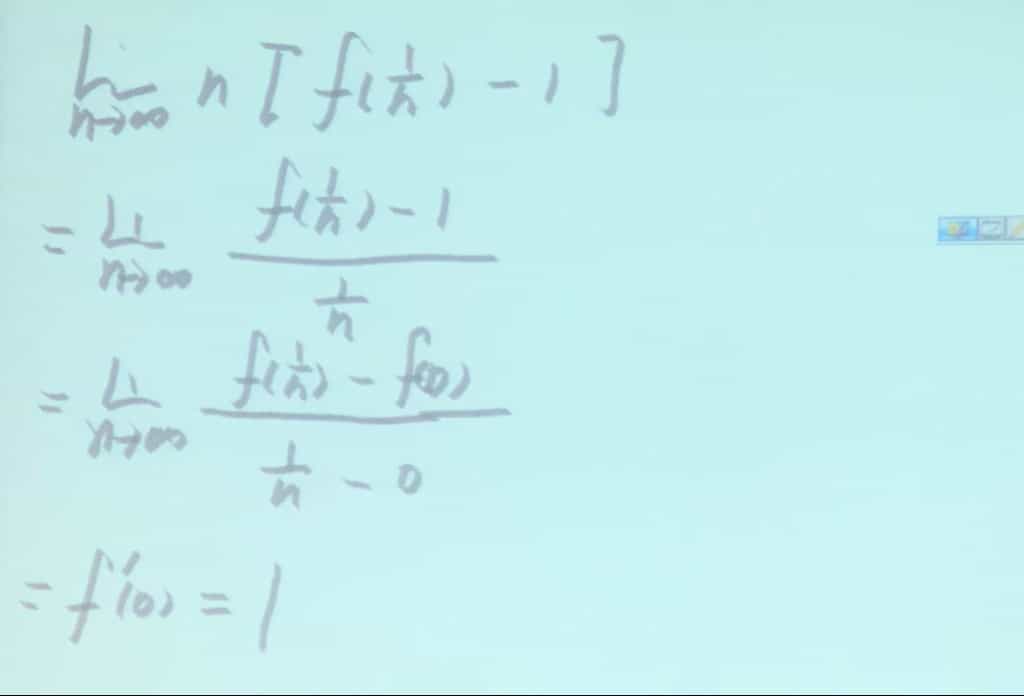 lim n→∞ n [f(1/n) - 1]
= lim n→∞ (f(1/n) - 1) / (1/n)
= lim n→∞ (f(1/n) - f(0)) / (1/n - 0)
= f'(0) = 1